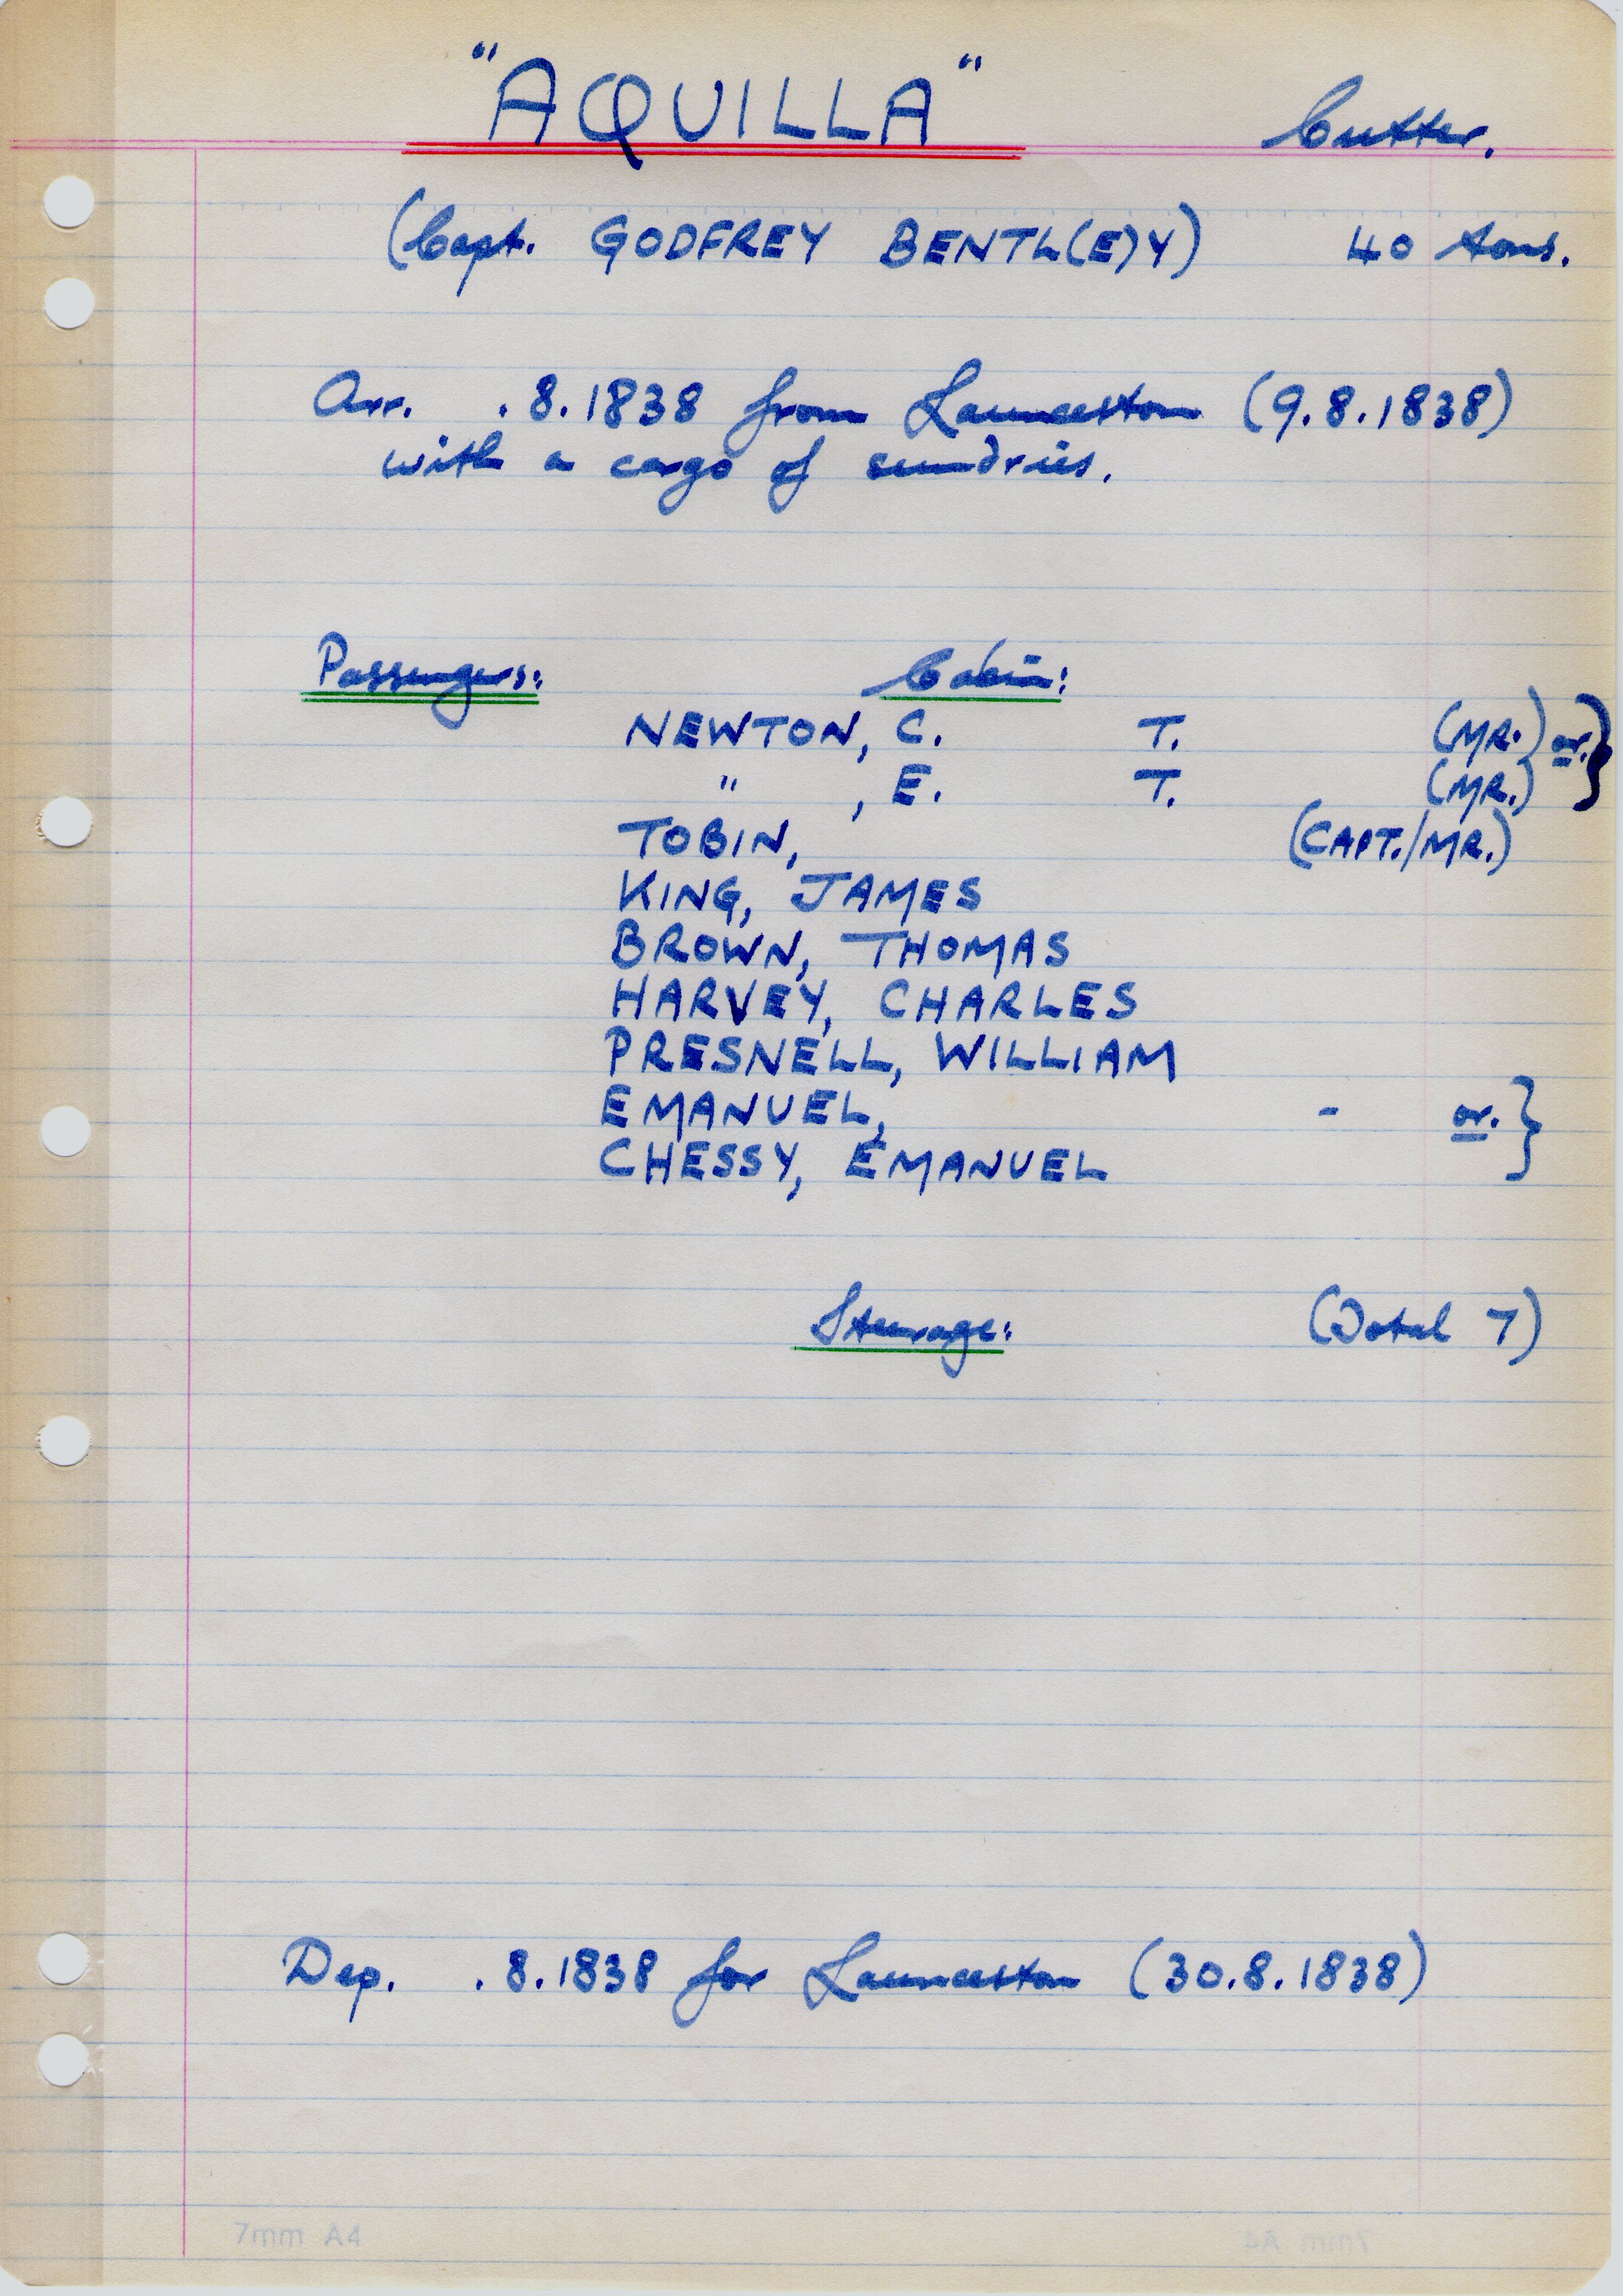 "AQUILLA" Cutter.
(Capt. GODFREY BENTL(E)Y) 40 tons.
Arr. .8.1838 from Launceston (9.8.1838)
with a cargo of sundries.
Passengers: Cabin:
NEWTON, C. T. (MR.) or.}
" , E. T. (MR.)
TOBIN, (CAPT./MR.)
KING, JAMES
BROWN, THOMAS
HARVEY, CHARLES
PRESNELL, WILLIAM
EMANUEL, - or.}
CHESSY, EMANUEL
Steerage: (Total 7)
Dep. .8.1838 for Launceston (30.8.1838)
7mm A4
7mm A4